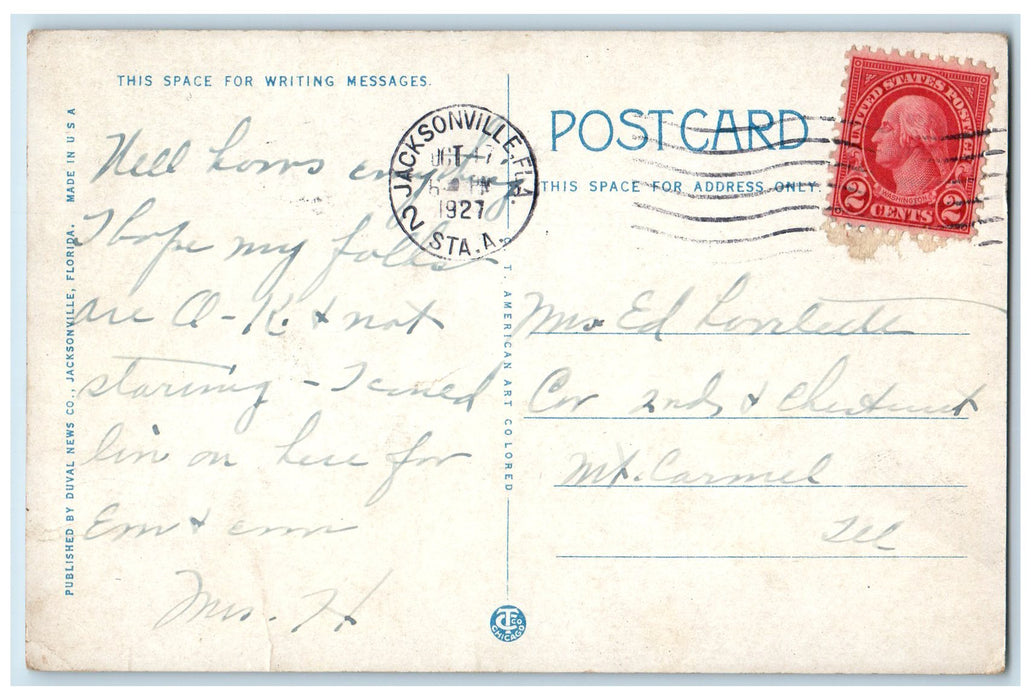 THIS SPACE FOR WRITING MESSAGES.
Nell hows everything
I hope my folks
are O-K. & not
starving - I could
liv on here for
Em & em
Mrs. H
PUBLISHED BY DUVAL NEWS CO., JACKSONVILLE, FLORIDA. MADE IN U S A
JACKSONVILLE, FLA.
OCT 17
6 PM
1927
2 STA. A.
T. AMERICAN ART COLORED
C.T. CO. CHICAGO
POST CARD
THIS SPACE FOR ADDRESS ONLY.
UNITED STATES POSTAGE
WASHINGTON
2 CENTS 2
Mrs Ed
Cor 2nd & Chestnut
Mt. Carmel
Ill